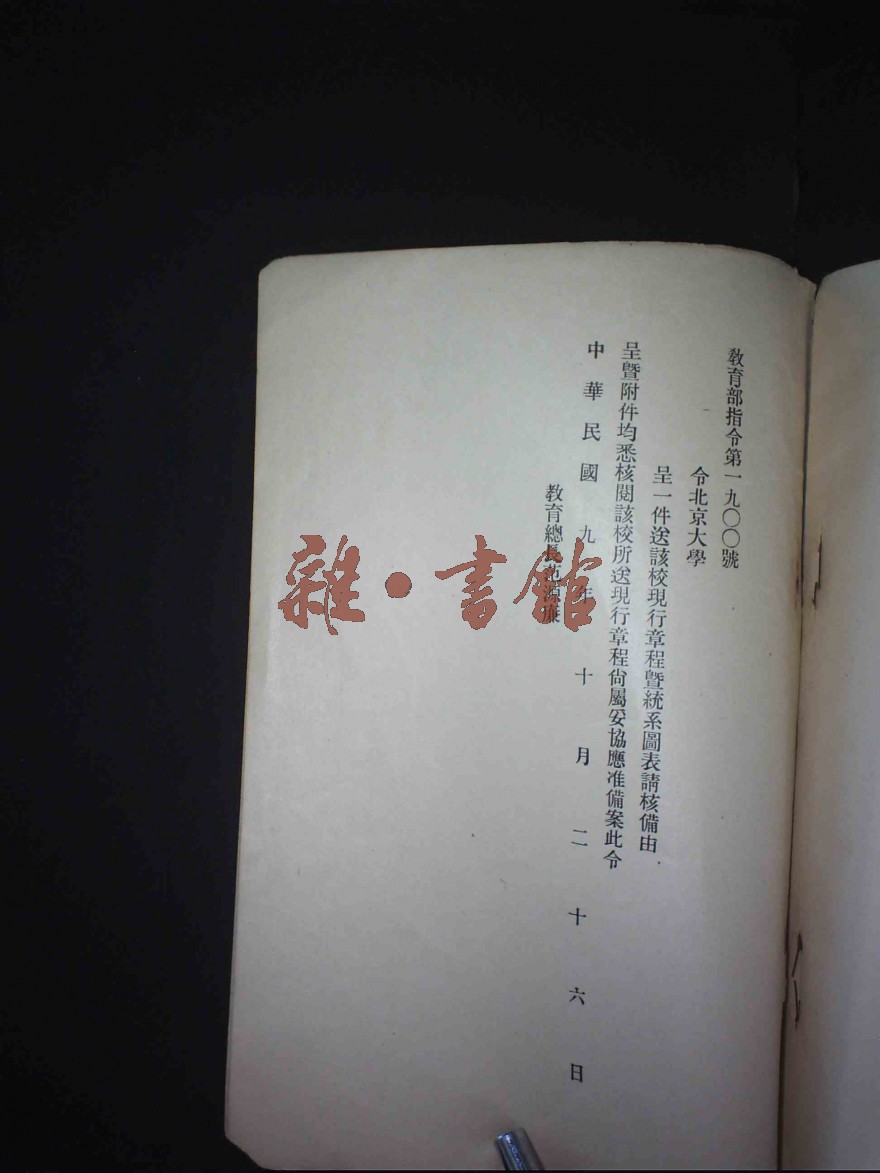 教育部指令第一九〇〇號
令北京大學
呈一件送該校現行章程暨統系圖表請核備由
呈暨附件均悉核閱該校所送現行章程尙屬妥協應准備案此令
中華民國九年十月二十六日
教育總長范源廉
雜·書館